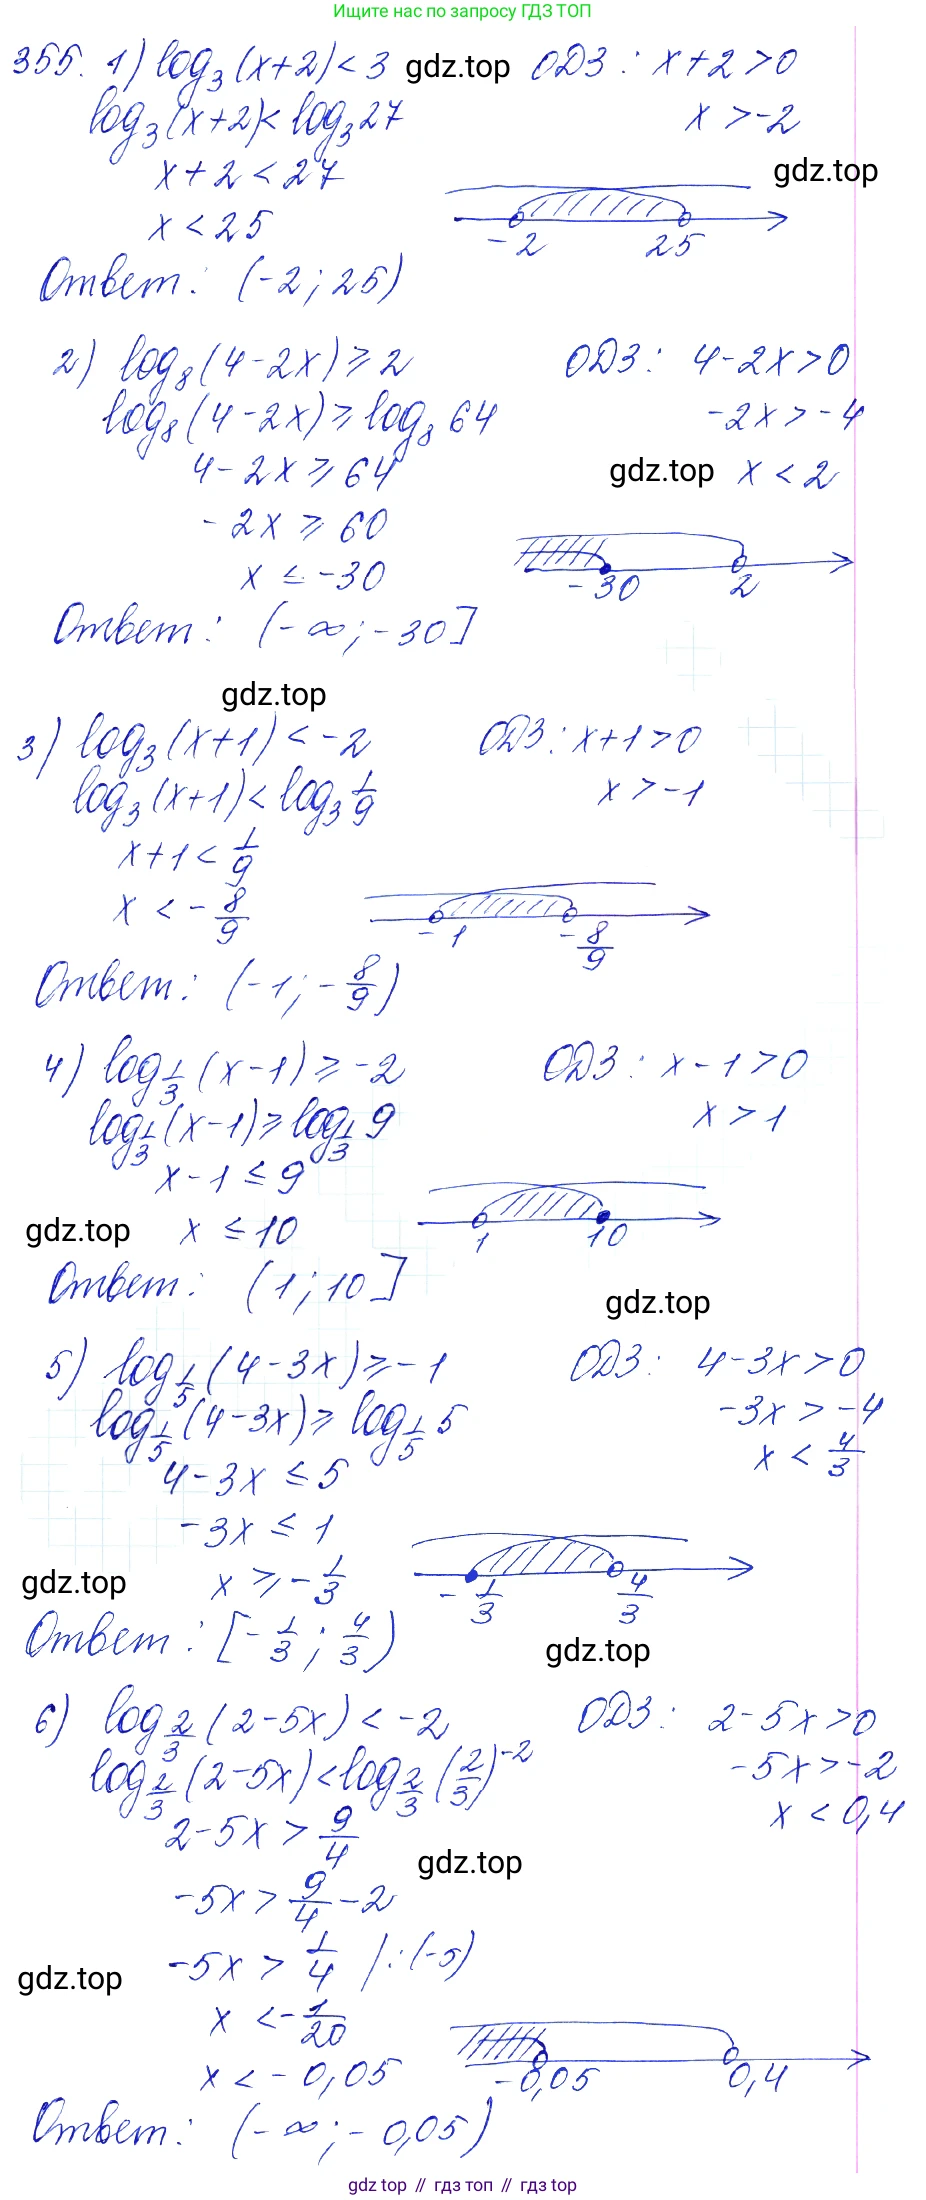 Ищите нас по запросу ГДЗ ТОП
355. 1) log₃(x+2)<3 gdz.top ОДЗ: x+2>0
log₃(x+2)<log₃27 x>-2
x+2<27 gdz.top
x<25
-2 25
Ответ: (-2; 25)
2) log₈(4-2x)≥2 ОДЗ: 4-2x>0
log₈(4-2x)≥log₈64 -2x>-4
4-2x≥64 gdz.top x<2
-2x≥60
x≤-30 -30 2
Ответ: (-∞; -30]
gdz.top
3) log₃(x+1)<-2 ОДЗ: x+1>0
log₃(x+1)<log₃ 1/9 x>-1
x+1<1/9
x<-8/9 -1 -8/9
Ответ: (-1; -8/9)
4) log_{1/3}(x-1)≥-2 ОДЗ: x-1>0
log_{1/3}(x-1)≥log_{1/3}9 x>1
x-1≤9
gdz.top x≤10 1 10
Ответ: (1; 10]
gdz.top
5) log_{1/5}(4-3x)≥-1 ОДЗ: 4-3x>0
log_{1/5}(4-3x)≥log_{1/5}5 -3x>-4
4-3x≤5 x<4/3
-3x≤1
gdz.top x≥-1/3 -1/3 4/3
Ответ: [-1/3; 4/3)
gdz.top
6) log_{2/3}(2-5x)<-2 ОДЗ: 2-5x>0
log_{2/3}(2-5x)<log_{2/3}(2/3)⁻² -5x>-2
2-5x>9/4 x<0,4
gdz.top
-5x>9/4-2
gdz.top -5x>1/4 |:(-5)
x<-1/20
x<-0,05 -0,05 0,4
Ответ: (-∞; -0,05)
gdz.top // гдз топ // gdz.top